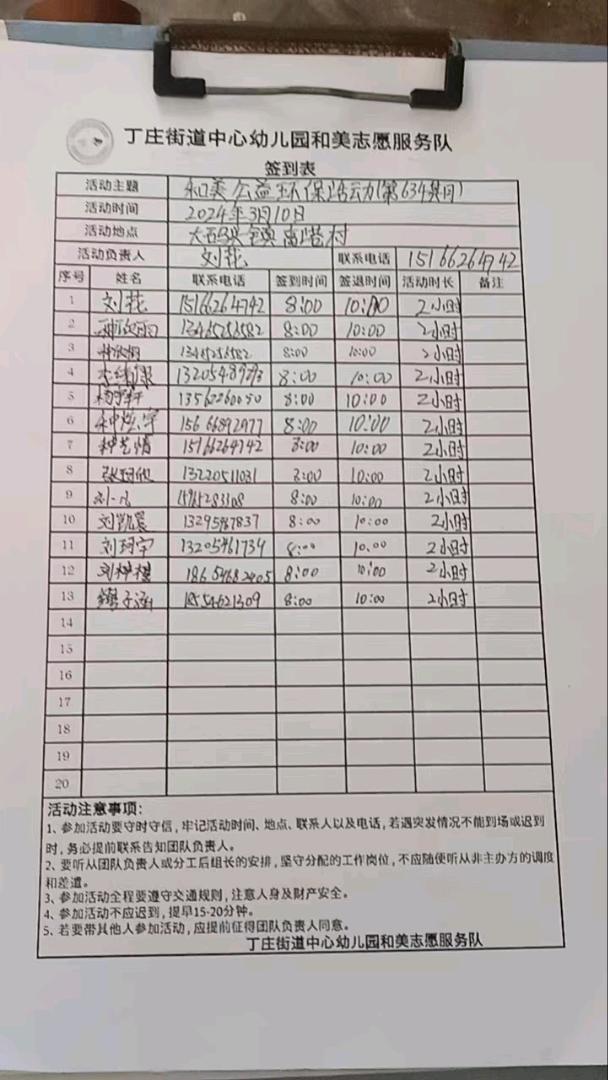 丁庄街道中心幼儿园和美志愿服务队
签到表
活动主题 和美公益环保活动(第634期)
活动时间 2024年3月10日
活动地点 大码头镇 高港村
活动负责人 刘花 联系电话 15166264742
序号 姓名 联系电话 签到时间 签退时间 活动时长 备注
1 刘花 15166264742 8:00 10:00 2小时
2 13465256582 8:00 10:00 2小时
3 13465256582 8:00 10:00 2小时
4 8:00 10:00 2小时
5 杨宇轩 13562260050 8:00 10:00 2小时
6 15666892977 8:00 10:00 2小时
7 种艺情 15166264742 8:00 10:00 2小时
8 13220511031 8:00 10:00 2小时
9 刘一凡 8:00 10:00 2小时
10 刘凯晨 8:00 10:00 2小时
11 刘珂宇 8:00 10:00 2小时
12 8:00 10:00 2小时
13 18554621309 8:00 10:00 2小时
14
15
16
17
18
19
20
活动注意事项:
1、参加活动要守时守信,牢记活动时间、地点、联系人以及电话,若遇突发情况不能到场或迟到
时,务必提前联系告知团队负责人。
2、要听从团队负责人或分工后组长的安排,坚守分配的工作岗位,不应随便听从非主办方的调度
和差遣。
3、参加活动全程要遵守交通规则,注意人身及财产安全。
4、参加活动不应迟到,提早15-20分钟。
5、若要带其他人参加活动,应提前征得团队负责人同意。
丁庄街道中心幼儿园和美志愿服务队